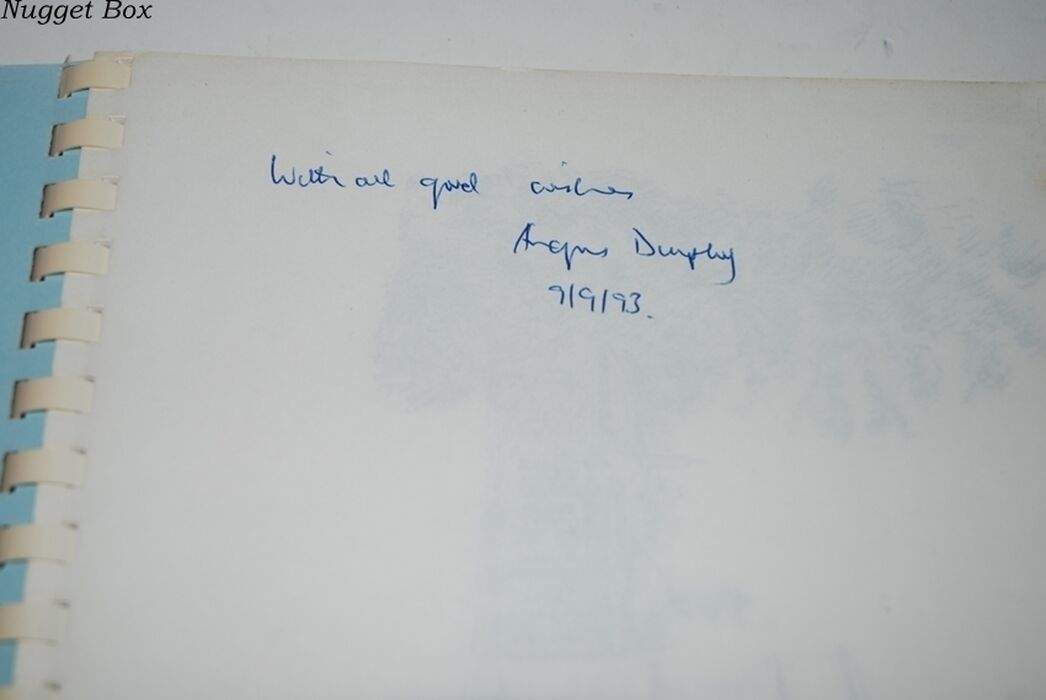 Nugget Box
With all good wishes
Angus Dunphy
9/9/93.